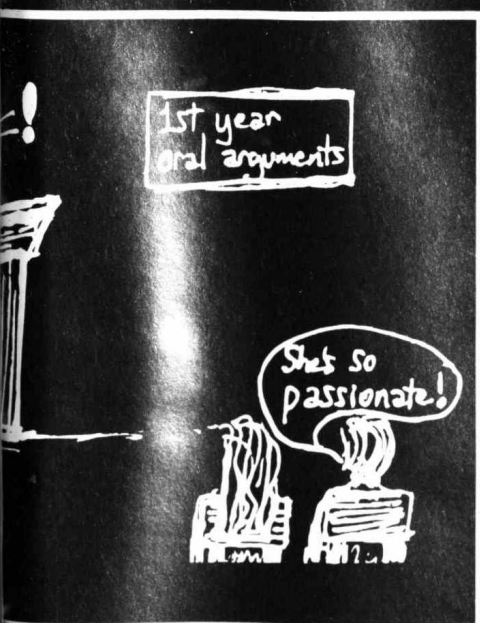 !
1st year
oral arguments
She's so
passionate!